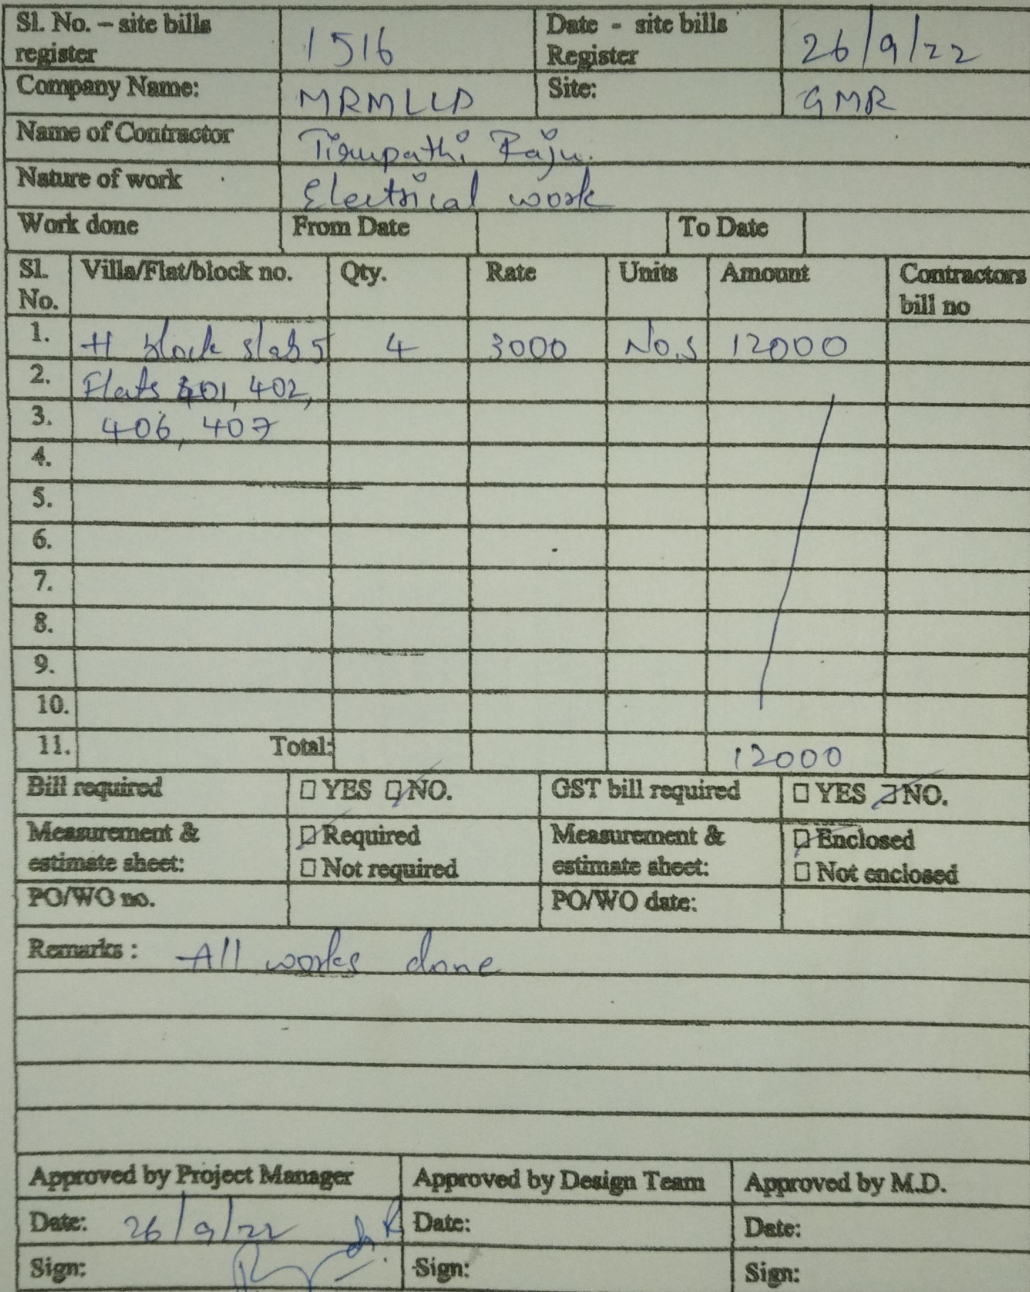 Sl. No. – site bills register 1516 Date - site bills Register 26/9/22
Company Name: MRMLLP Site: GMR
Name of Contractor Tirupathi Raju.
Nature of work Electrical work
Work done From Date To Date
Sl. No. Villa/Flat/block no. Qty. Rate Units Amount Contractors bill no
1. H block slab 5 4 3000 No.s 12000
2. Flats 401, 402,
3. 406, 407
4.
5.
6.
7.
8.
9.
10.
11. Total: 12000
Bill required YES NO. GST bill required YES NO.
Measurement & estimate sheet: Required Measurement & estimate sheet: Enclosed
Not required Not enclosed
PO/WO no. PO/WO date:
Remarks : All works done
Approved by Project Manager Approved by Design Team Approved by M.D.
Date: 26/9/22 Date: Date:
Sign: Sign: Sign: